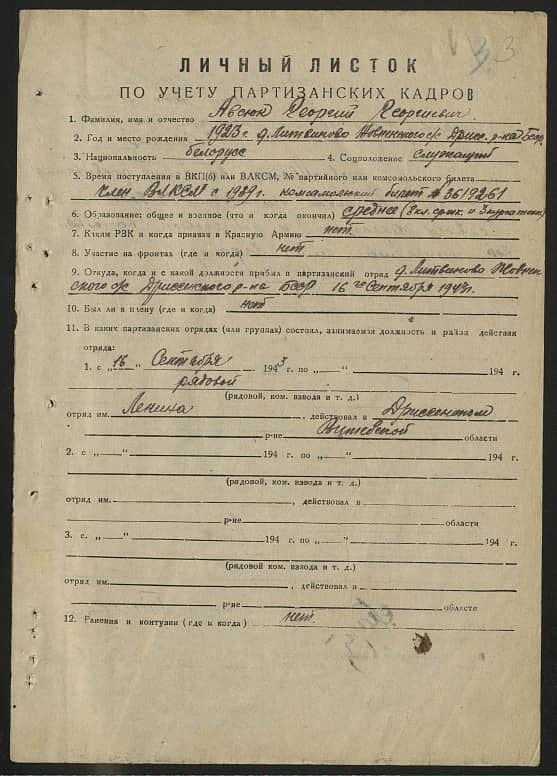 3
ЛИЧНЫЙ ЛИСТОК
ПО УЧЕТУ ПАРТИЗАНСКИХ КАДРОВ
1. Фамилия, имя и отчество Авсюк Георгий Георгиевич
2. Год и место рождения 1923 г. д. Литвиново Жовтнского с/с Дрисс. р-на Бсср
3. Национальность белорусс 4. Соцположение служащий
5. Время поступления в ВКП(б) или ВЛКСМ, № партийного или комсомольского билета
член ВЛКСМ с 1939 г. комсомольский билет № 3619261
6. Образование: общее и военное (что и когда окончил) среднее (8 кл. и 3 курса)
7. Каким РВК и когда призван в Красную Армию нет.
8. Участие на фронтах (где и когда) нет.
9. Откуда, когда и с какой должности прибыл в партизанский отряд д. Литвиново Жовтн
ского с/с Дриссенского р-на Бсср 16 го Сентября 1943 г.
10. Был ли в плену (где и когда) нет
11. В каких партизанских отрядах (или группах) состоял, занимаемая должность и район действия
отряда:
1. с „16 Сентября 1943 г. по „—“ 194 г.
рядовой
(рядовой, ком. взвода и т. д.)
отряд им. Ленина, действовал в Дриссенском
р-не Витебской области
2. с „—“ 194 г. по „—“ 194 г.
(рядовой, ком. взвода и т. д.)
отряд им. , действовал в
р-не области
3. с. „—“ 194 г. по „—“ 194 г.
(рядовой ком. взвода и т. д.)
отряд им. , действовал в
р-не области
12. Ранения и контузии (где и когда) нет.